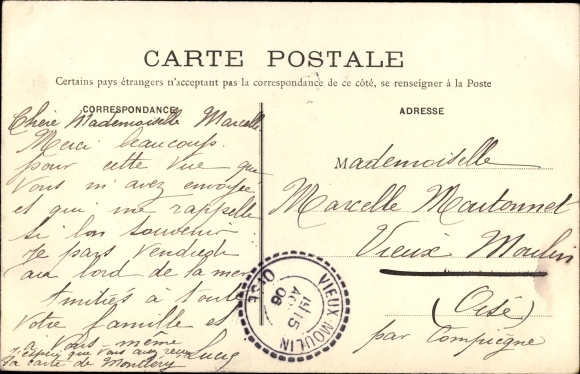 CARTE POSTALE
Certains pays étrangers n'acceptant pas la correspondance de ce côté, se renseigner à la Poste
CORRESPONDANCE
Chère Mademoiselle Marcelle
Merci beaucoup
pour cette vue que
vous m'avez envoyée
et qui me rappelle
si bon souvenir
Je pars Vendredi
au bord de la mer
Amitiés à toute
votre famille et
à vous-même
j'espère que vous avez reçu
la carte de Montlhéry
Lucie
ADRESSE
Mademoiselle
Marcelle Moutonnet
Vieux Moulin
(Oise)
par Compiègne
VIEUX-MOULIN
OISE
15
06